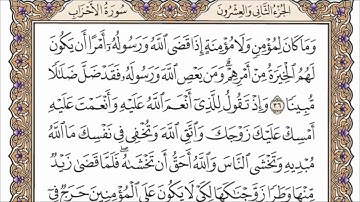 الجزء الثاني والعشرون سورة الأحزاب
وَمَا كَانَ لِمُؤْمِنٍ وَلَا مُؤْمِنَةٍ إِذَا قَضَى ٱللَّهُ وَرَسُولُهُۥٓ أَمْرًا أَن يَكُونَ
لَهُمُ ٱلْخِيَرَةُ مِنْ أَمْرِهِمْ ۗ وَمَن يَعْصِ ٱللَّهَ وَرَسُولَهُۥ فَقَدْ ضَلَّ ضَلَـٰلًا
مُّبِينًا ٣٦ وَإِذْ تَقُولُ لِلَّذِىٓ أَنْعَمَ ٱللَّهُ عَلَيْهِ وَأَنْعَمْتَ عَلَيْهِ
أَمْسِكْ عَلَيْكَ زَوْجَكَ وَٱتَّقِ ٱللَّهَ وَتُخْفِى فِى نَفْسِكَ مَا ٱللَّهُ
مُبْدِيهِ وَتَخْشَى ٱلنَّاسَ وَٱللَّهُ أَحَقُّ أَن تَخْشَىٰهُ ۖ فَلَمَّا قَضَىٰ زَيْدٌ
مِّنْهَا وَطَرًا زَوَّجْنَـٰكَهَا لِكَىْ لَا يَكُونَ عَلَى ٱلْمُؤْمِنِينَ حَرَجٌ فِىٓ